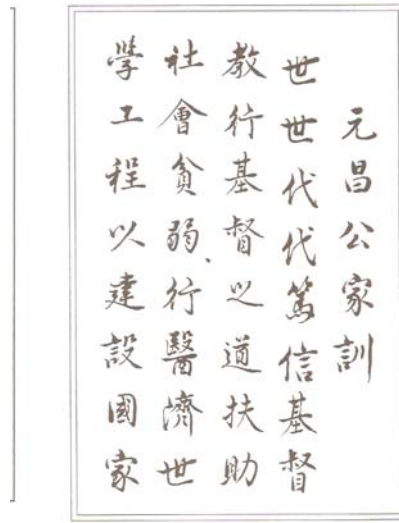 元昌公家訓
世世代代篤信基督
教行基督之道扶助
社會貧弱、行醫濟世
學工程以建設國家